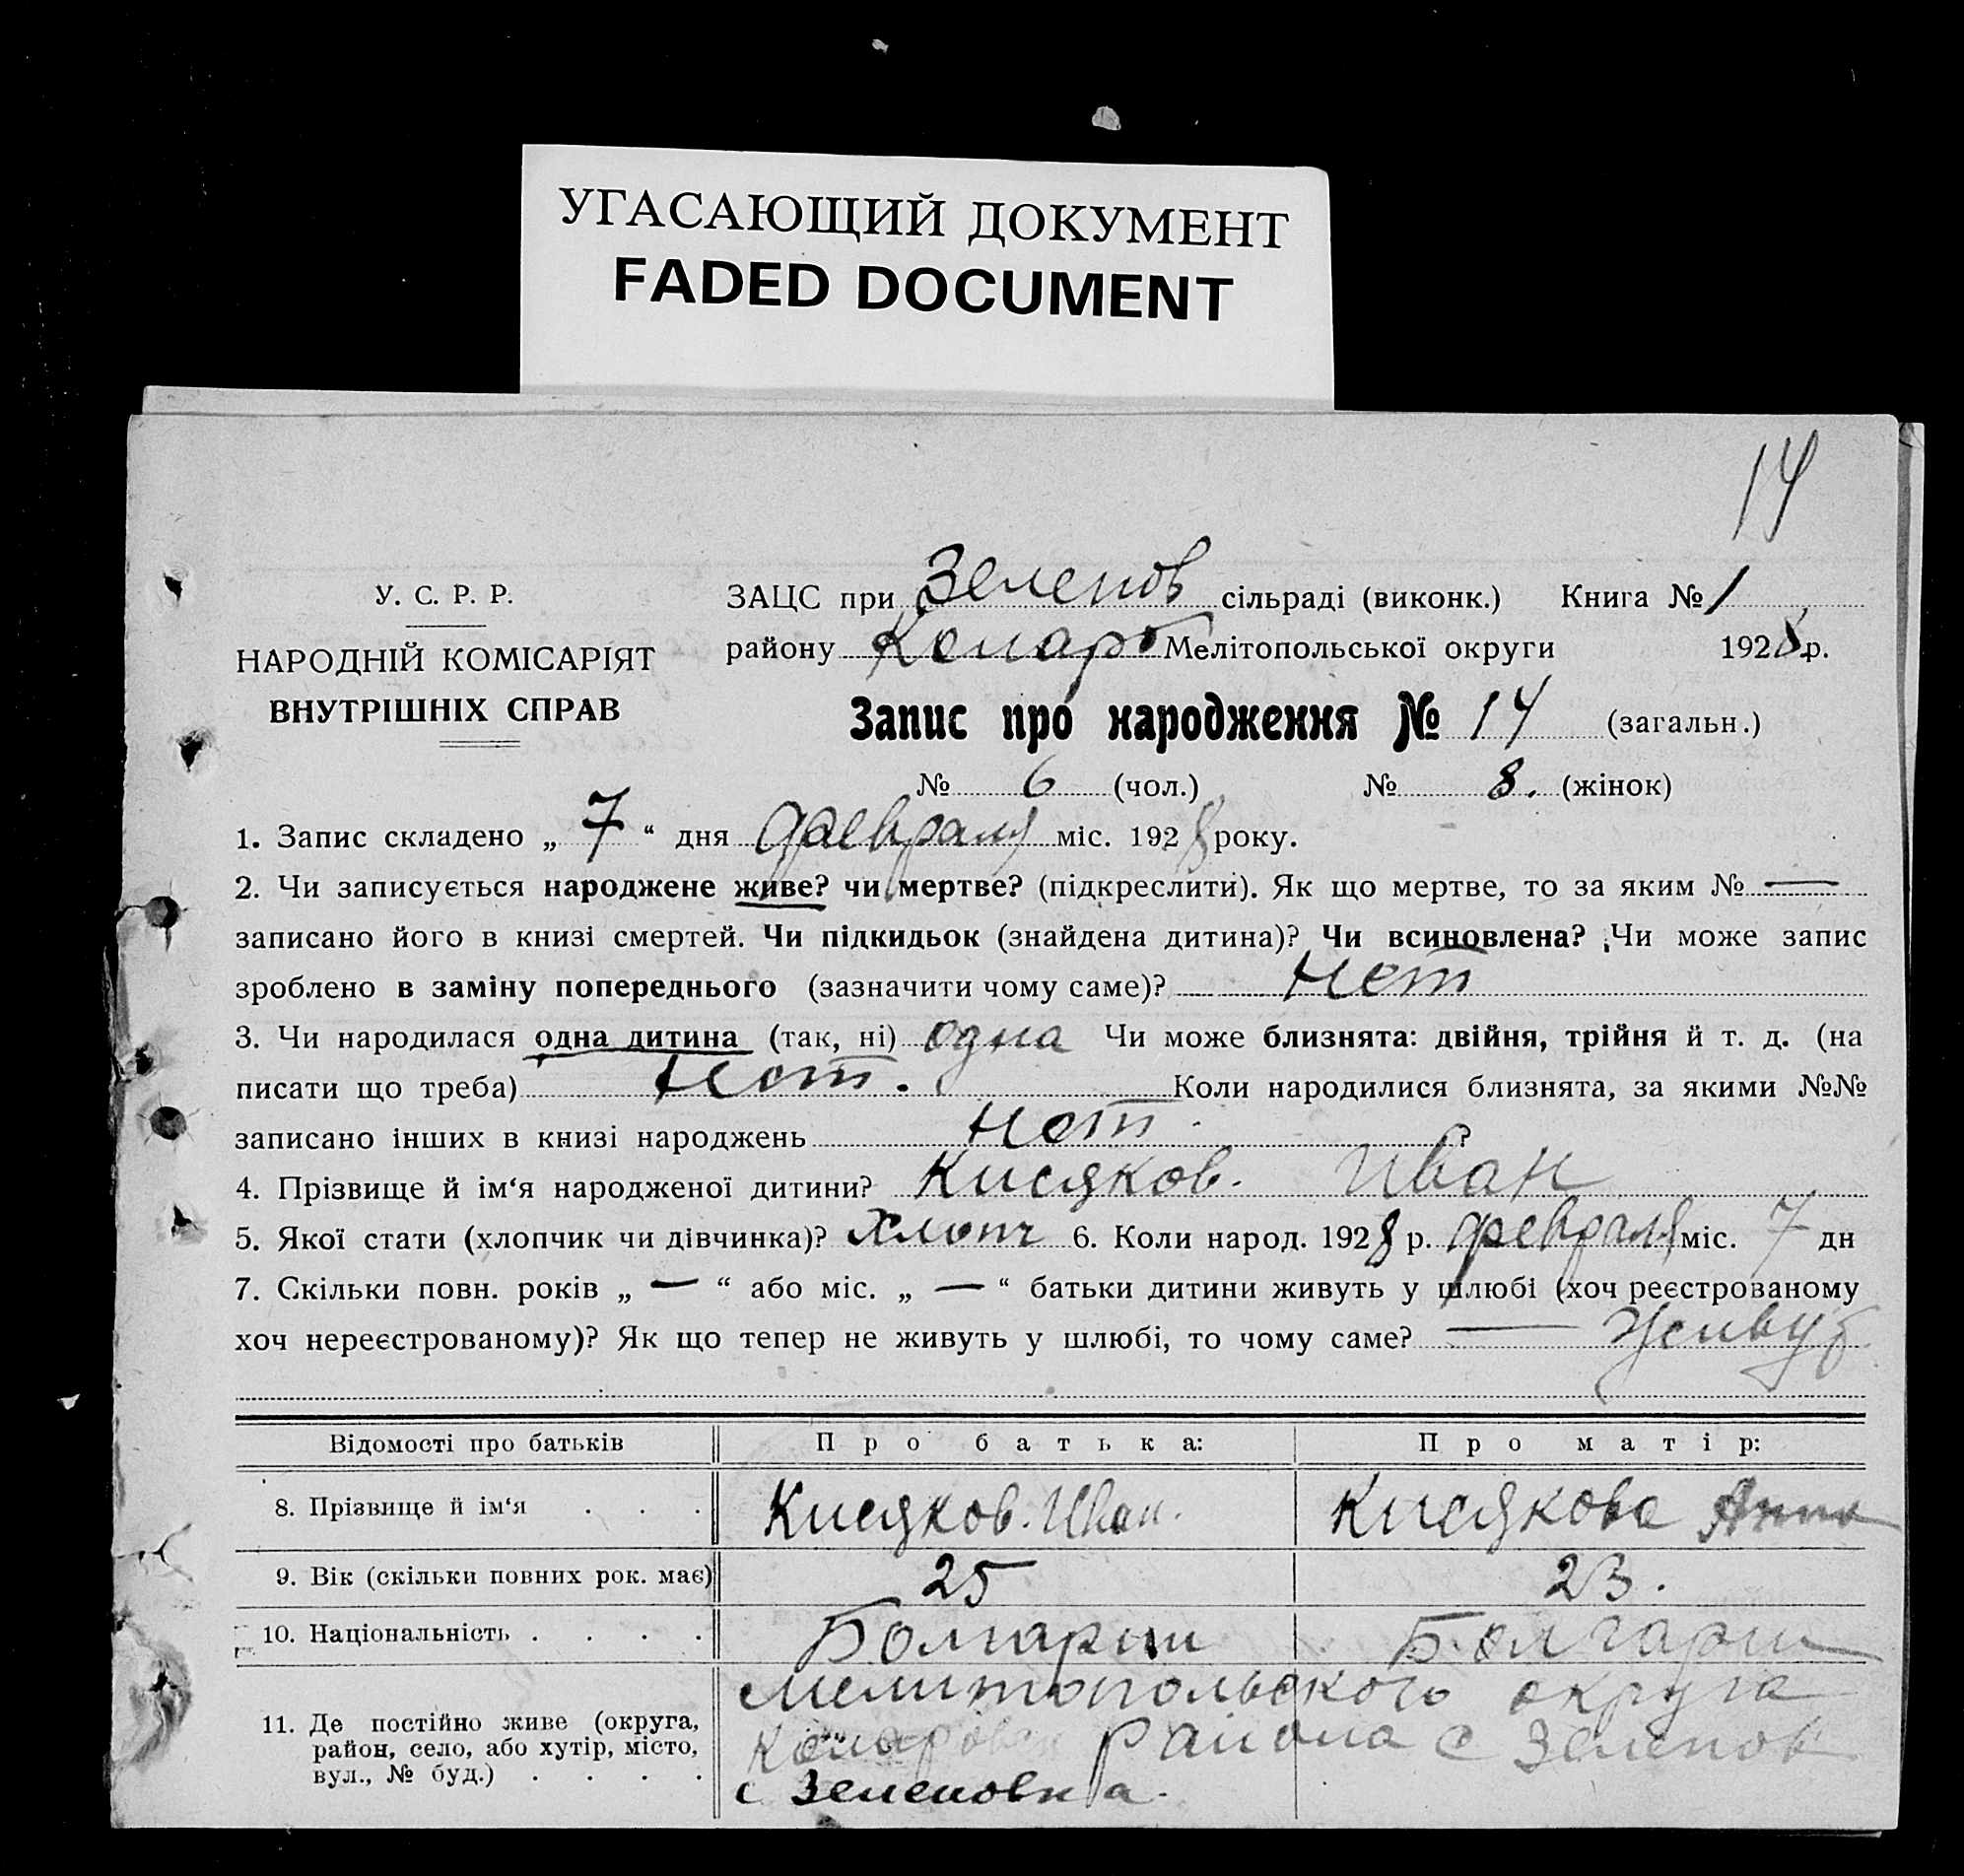 УГАСАЮЩИЙ ДОКУМЕНТ
FADED DOCUMENT
14
У. С. Р. Р.
НАРОДНІЙ КОМІСАРІЯТ
ВНУТРІШНІХ СПРАВ
ЗАЦС при Зеленов сільраді (виконк.) Книга № 1
району Комаро Мелітопольської округи 1928 р.
Запис про народження № 14 (загальн.)
№ 6 (чол.) № 8. (жінок)
1. Запис складено „ 7 “ дня февраля міс. 1928 року.
2. Чи записується народжене живе? чи мертве? (підкреслити). Як що мертве, то за яким № —
записано його в книзі смертей. Чи підкидьок (знайдена дитина)? Чи всиновлена? Чи може запис
зроблено в заміну попереднього (зазначити чому саме)? нет
3. Чи народилася одна дитина (так, ні) одна Чи може близнята: двійня, трійня й т. д. (на
писати що треба) нет. Коли народилися близнята, за якими №№
записано інших в книзі народжень нет ?
4. Прізвище й ім‘я народженої дитини? Кисяков. Иван
5. Якої стати (хлопчик чи дівчинка)? хлопч 6. Коли народ. 1928 р. февраля міс. 7 дн
7. Скільки повн. років „ — “ або міс. „ — “ батьки дитини живуть у шлюбі (хоч реєстрованому
хоч нереєстрованому)? Як що тепер не живуть у шлюбі, то чому саме? — Живут
Відомості про батьків Про батька: Про матір:
8. Прізвище й ім‘я . . . Кисяков. Иван. Кисякова Анна
9. Вік (скільки повних рок. має) 25 23.
10. Національність . . . . Болгарин Болгарин
11. Де постійно живе (округа,
район, село, або хутір, місто,
вул., № буд.) . . . .
Мелитопольского округа
Комаровск района с Зеленов
с Зеленовка.